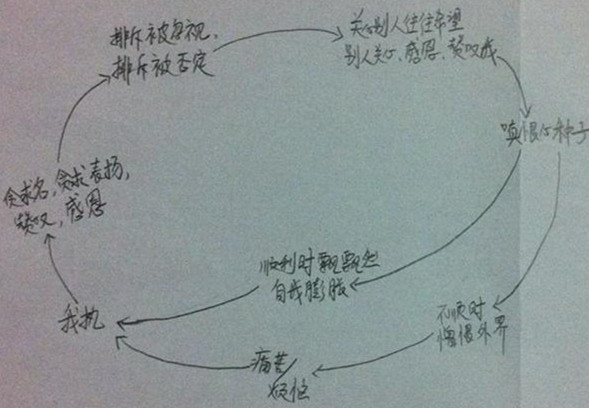 排斥被忽视,
排斥被否定
关心别人往往希望
别人关心,感恩,赞叹我
嗔恨心种子
贪求名,贪求表扬,
赞叹,感恩
顺利时飘飘然
自我膨胀
我执
不顺时
憎恨外界
痛苦/
烦恼